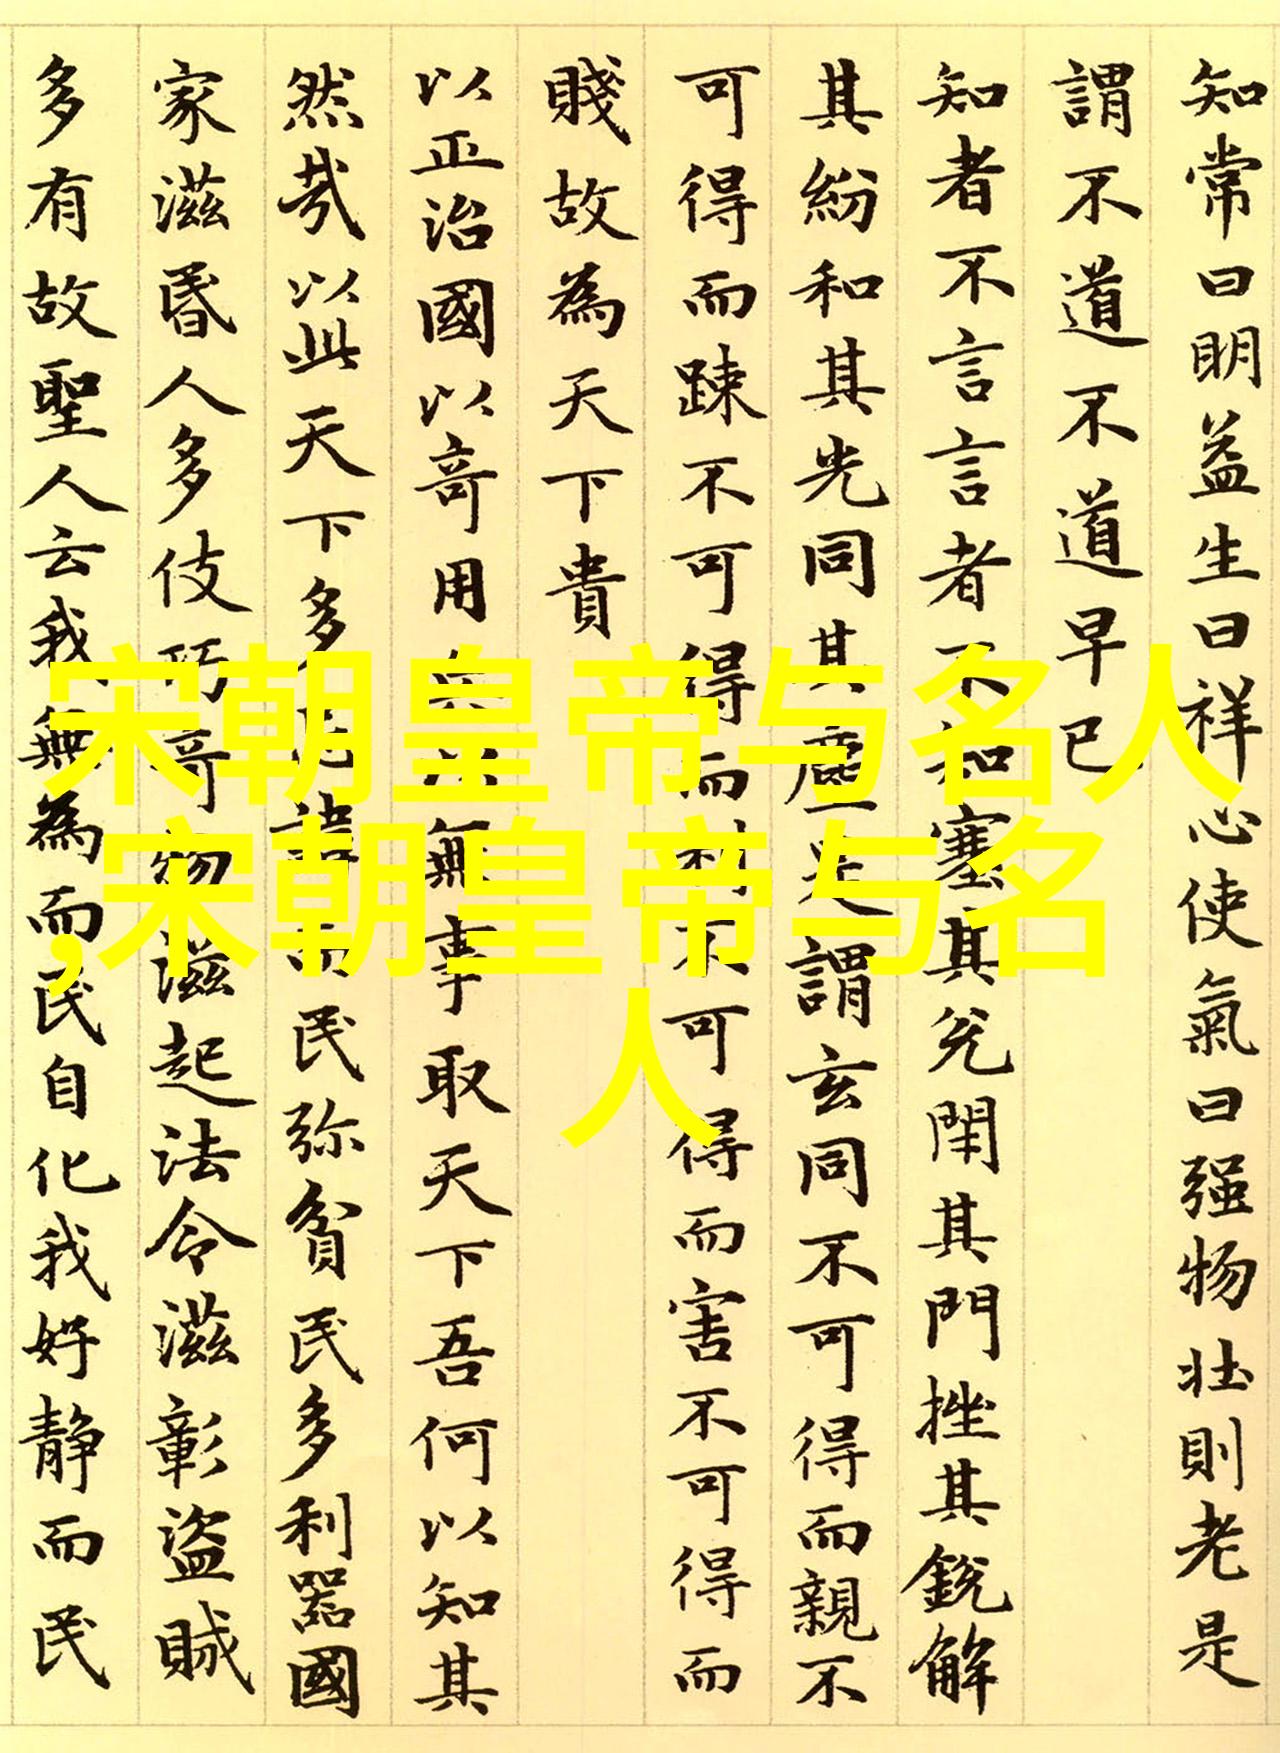 知常曰明益生曰祥心使氣曰强物壯則老是
謂不道不道早已
知者不言言者不知塞其兊閇其門挫其銳解
其紛和其光同其塵是謂玄同不可得而親不
可得而踈不可得而利不可得而害不可得而
賤故為天下貴
以正治國以竒用兵以無事取天下吾何以知其
然㢤以此天下多忌諱而民弥貧民多利器國
家滋昬人多伎巧竒物滋起法令滋彰盜賊
多有故聖人云我無為而民自化我好静而民
宋朝皇帝与名人
,宋朝皇帝与名
人